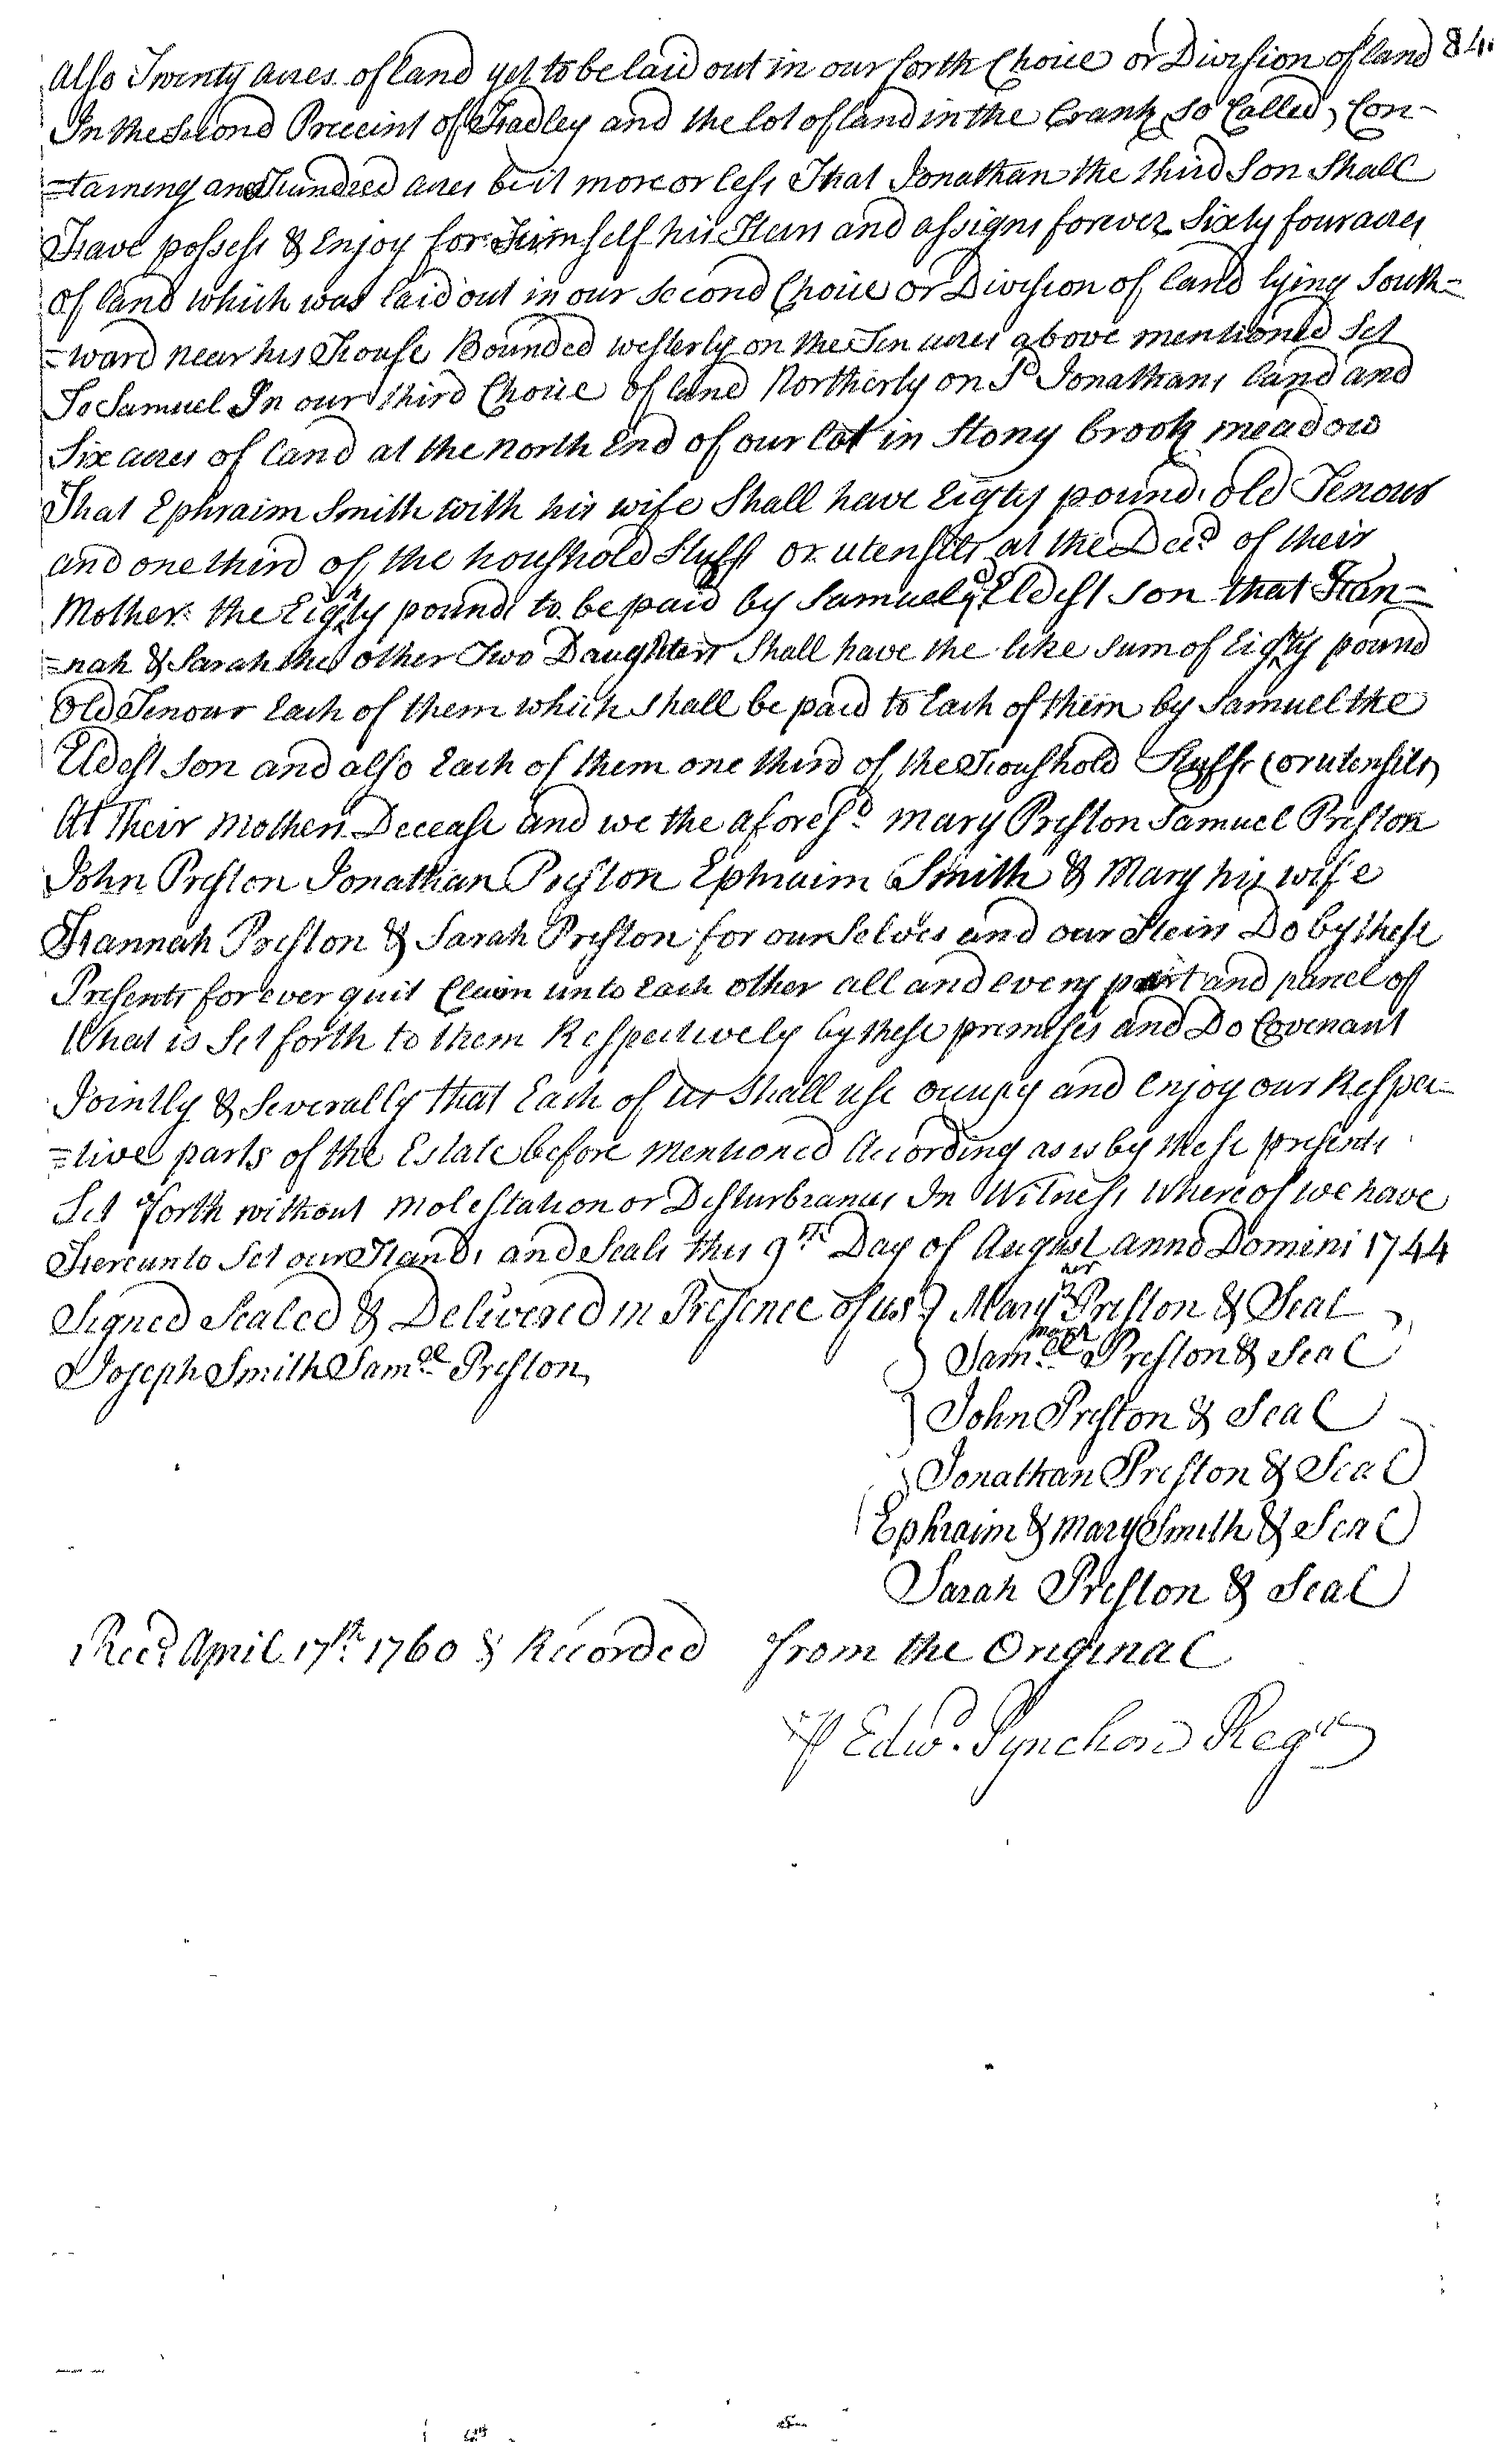 also Twenty acres of land yet to be laid out in our forth Choice or Division of land 84.
In the Second Precint of Hadley and the lot of land in the Crank so Called, Con-
=taineng an Hundred acres be it more or less That Jonathan the third Son Shall
Have possess & Enjoy for Heimself his Heirs and assigns forever Sixty four acres
of land which was laid out in our Second Choice or Division of land lying South=
=ward near his House Bounded westerly on the Ten acres above mentioned Set
To Samuel In our third Choice of land Northerly on sd Jonathans land and
Six acres of land at the north End of our lot in Stony brook meadow
That Ephraim Smith with his wife Shall have Eigty pounds old Tenour
and one third of the houshold Stuff or utensils at the Decd of their
Mother: the Eighty pounds to be paid by Samuel ye Eldest Son that Han=
=nah & Sarah the other Two Daughters Shall have the like Sum of Eighty pound
Old Tenour Each of them which shall be paid to Each of them by Samuel the
Eldest Son and also Each of them one third of the Houshold Stuffs (or utensils)
At Their mothers Decease and we the aforesd Mary Preston Samuel Preston
John Preston Jonathan Preston Ephraim Smith & Mary his wife
Hannah Preston & Sarah Preston for ourSelves and our Heirs Do by these
Presents forever quit Claim unto Each other all and every part and parcel of
What is Set forth to them Respectively by these premises and Do Covenant
Jointly & Severally that Each of us Shall use occupy and enjoy our Respec=
=tive parts of the Estate before mentioned According as is by these presents
Set forth without molestation or Desturbrances In Witness Whereof we have
Hereunto Set our Hands and Seals this 9th Day of August anno Domini 1744
Signed Sealed & Delivered in Presence of us } Mary Preston & Seal
Joseph Smith Samll Preston
Samll Preston & Seal
John Preston & Seal
Jonathan Preston & Seal
Ephraim & Mary Smith & Seal
Sarah Preston & Seal
Recd April 17th 1760 & Recorded from the Original
P Edwd Pynchon Regr